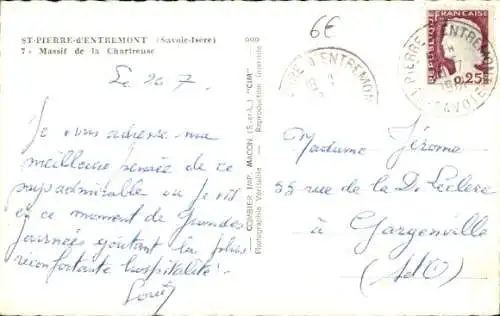 ST-PIERRE-d'ENTREMONT (Savoie-Isère)
7 - Massif de la Chartreuse
6€
Le 20 7.
Je vous adresse ma
meilleure pensée de ce
pays admirable où je vis
en ce moment de Grandes
journées goûtant la plus
réconfortante hospitalité.
COMBIER IMP. MACON (S.-et-L.) "CIM"
Photographie Véritable - Reproduction Interdite
REPUBLIQUE FRANÇAISE
0,25
PIERRE D'ENTREMONT
SAVOIE
Madame Jérome
55 rue de la D. Leclerc
à Gargenville
(S et O)